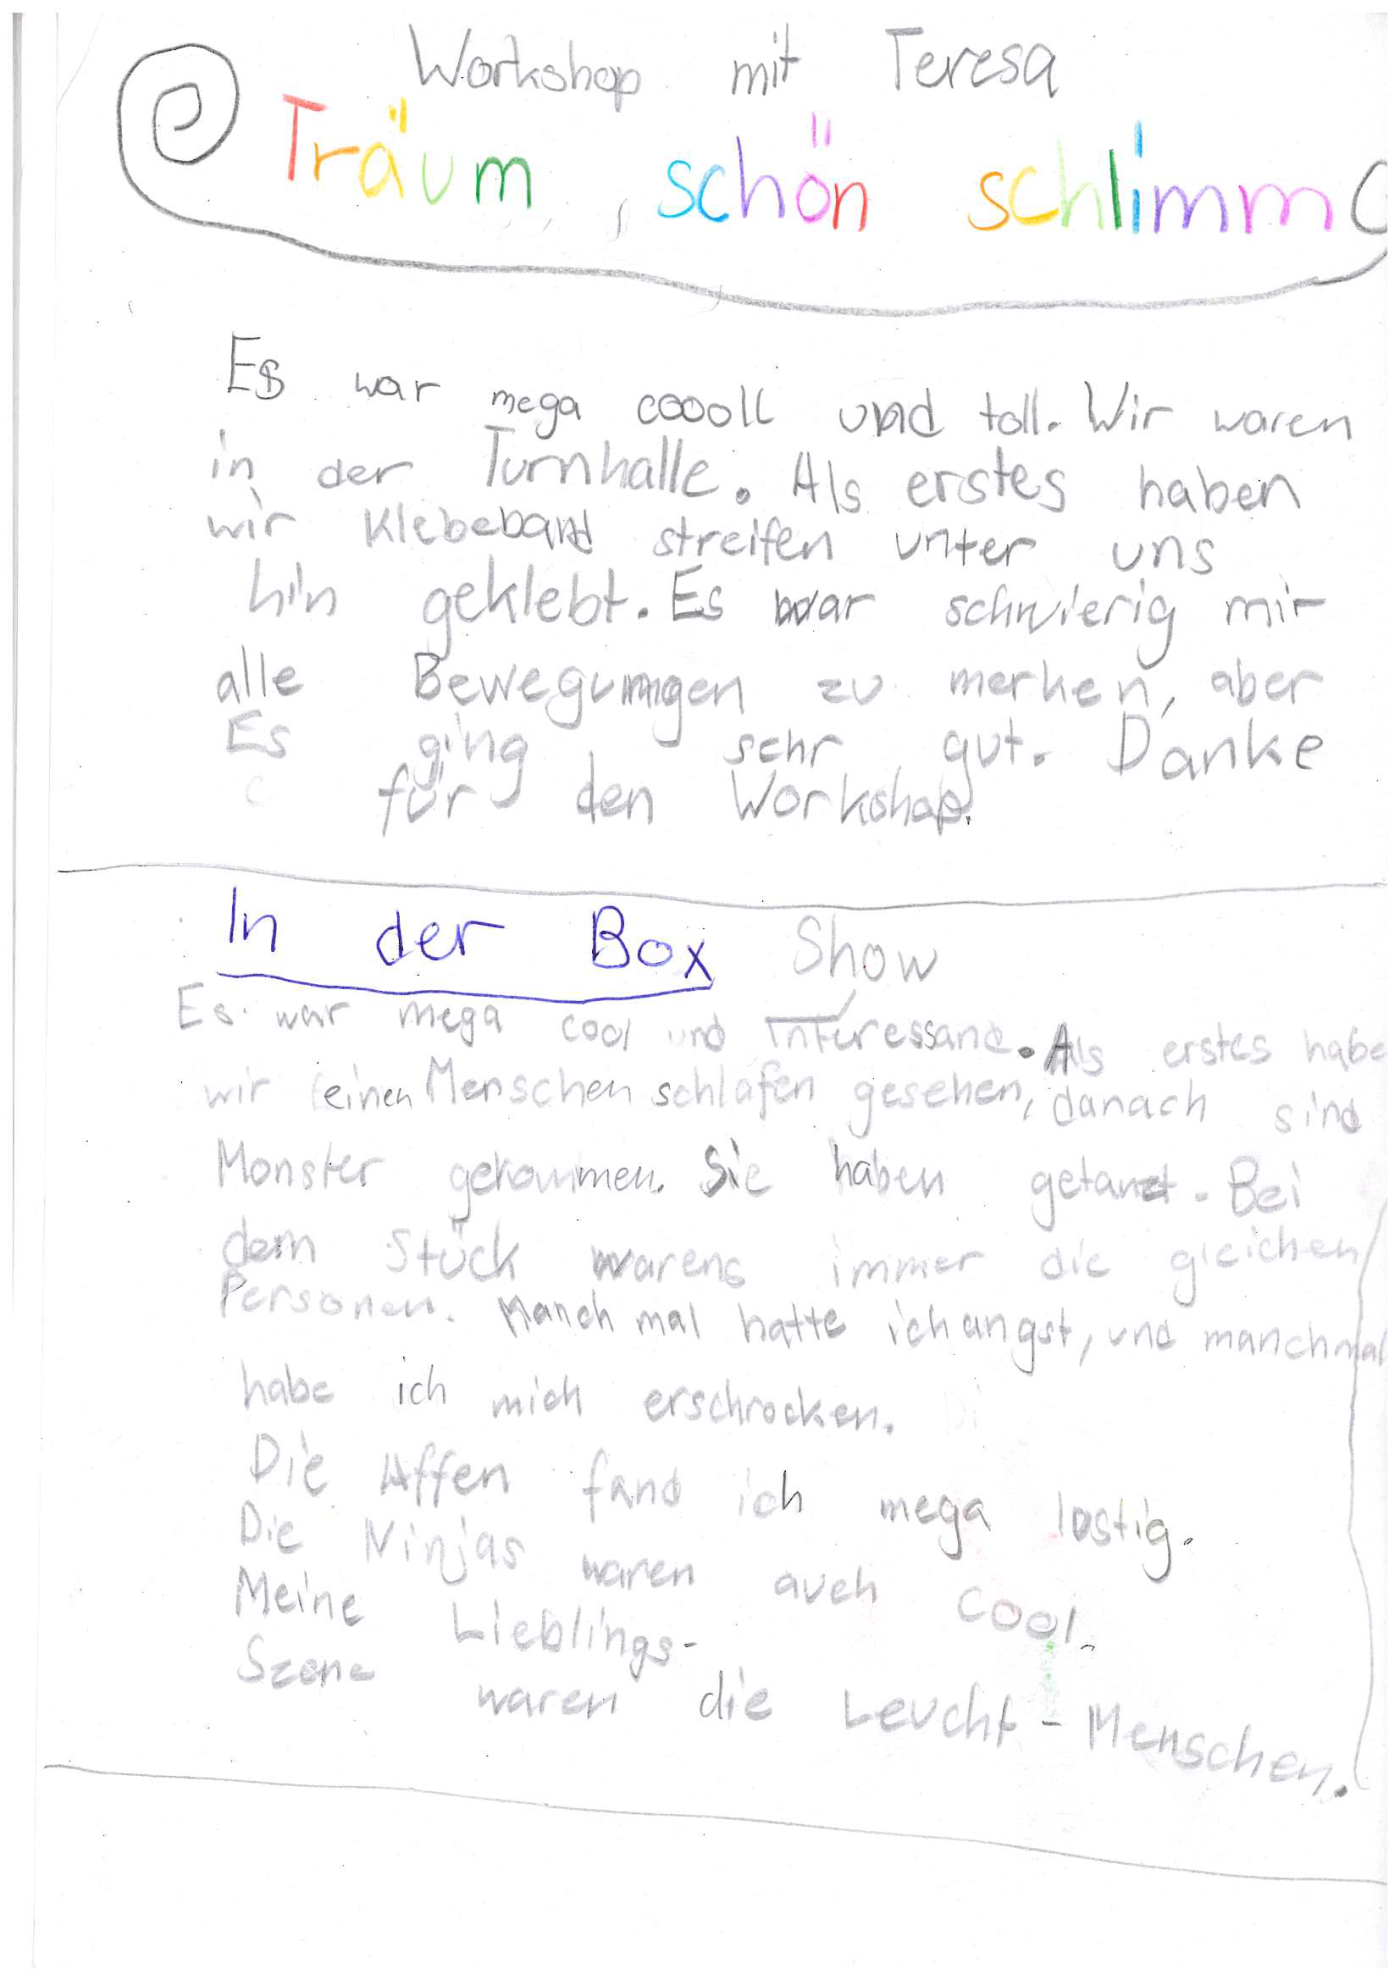 Workshop mit Teresa
Träum, schön schlimm
Es war mega coooll und toll. Wir waren
in der Turnhalle. Als erstes haben
wir Klebeband streifen unter uns
hin geklebt. Es war schwierig mir
alle Bewegungen zu merken, aber
Es ging sehr gut. Danke
für den Workshop.
In der Box Show
Es war mega cool und Interessand. Als erstes habe
wir einen Menschen schlafen gesehen, danach sind
Monster gekommen. Sie haben getanzt. Bei
dem Stück warens immer die gleichen
Personen. Manch mal hatte ich angst, und manchmal
habe ich mich erschrocken.
Die Affen fand ich mega lustig.
Die Ninjas waren auch cool.
Meine Lieblings-
Szene waren die Leucht-Menschen.